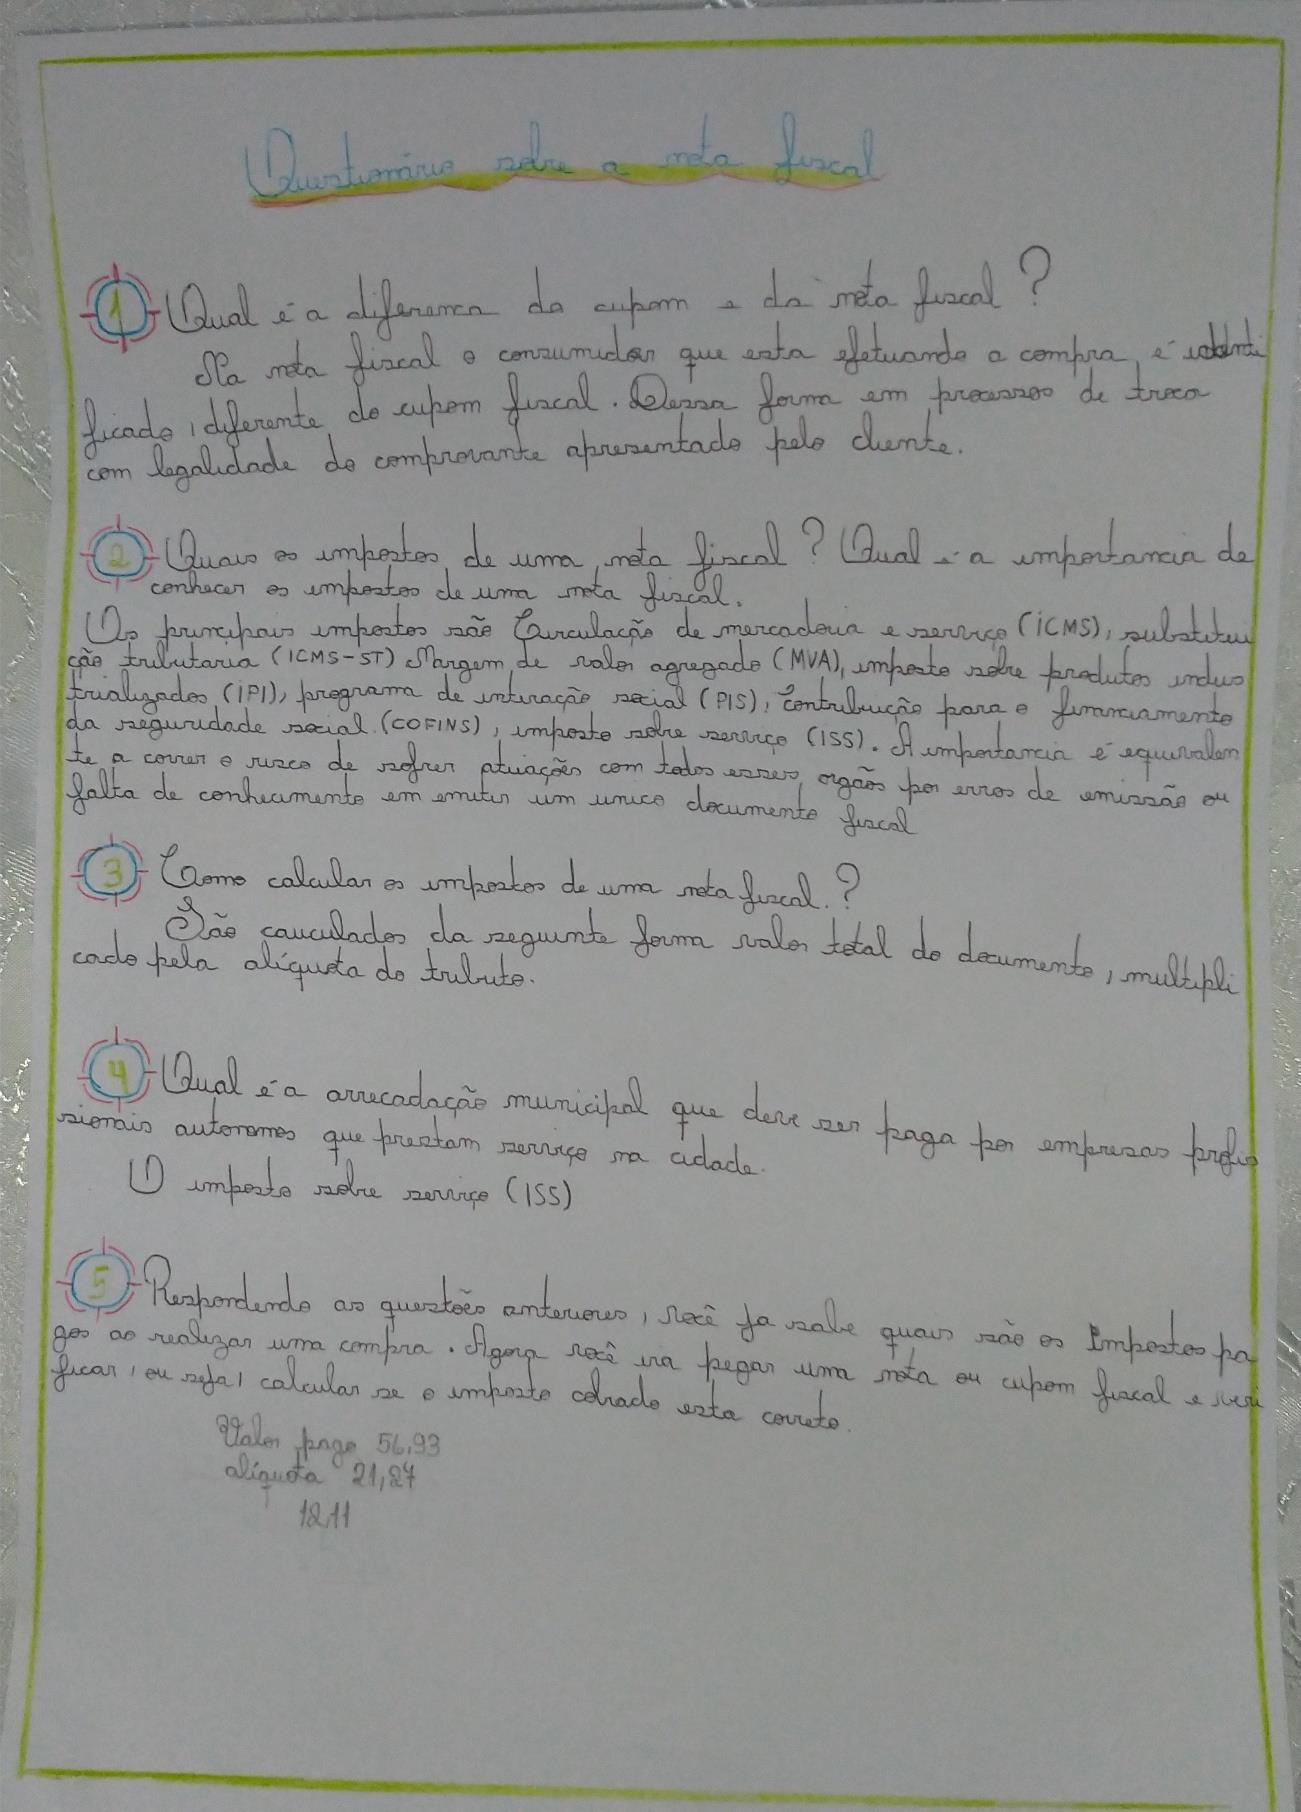 Questionário sobre a nota fiscal
1 Qual é a diferença do cupom e da nota fiscal?
Na nota fiscal o consumidor que esta efetuando a compra, é identi
ficado, diferente do cupom fiscal. Dessa forma em processos de troca
com legalidade do comprovante apresentado pelo cliente.
2 Quais os impostos de uma nota fiscal? Qual é a importancia de
conhecer os impostos de uma nota fiscal.
Os principais impostos são Circulação de mercadoria e serviço (ICMS), substitui
ção tributaria (ICMS-ST) Margem de valor agregado (MVA), imposto sobre produtos indus
trializados (IPI), programa de interação social (PIS), Contribuição para o financiamento
da seguridade social (COFINS), imposto sobre serviço (ISS). A importancia é equivalen
te a correr o risco de sofrer atuações com todos esses orgãos por erros de emissão ou
falta de conhecimento em emitir um unico documento fiscal
3 Como calcular os impostos de uma nota fiscal.?
São cauculados da seguinte forma valor total do documento, multipli
cado pela alíquota do tributo.
4 Qual é a arrecadação municipal que deve ser paga por empresas profis
sionais autonomos que prestam serviço na cidade.
O imposto sobre serviço (ISS)
5 Respondendo as questões anteriores, você ja sabe quais são os Impostos pa
gos ao realizar uma compra. Agora você ira pegar uma nota ou cupom fiscal e veri
ficar, ou seja, calcular se o imposto cobrado esta correto.
Valor pago 56,93
alíquota 21,27
12,11